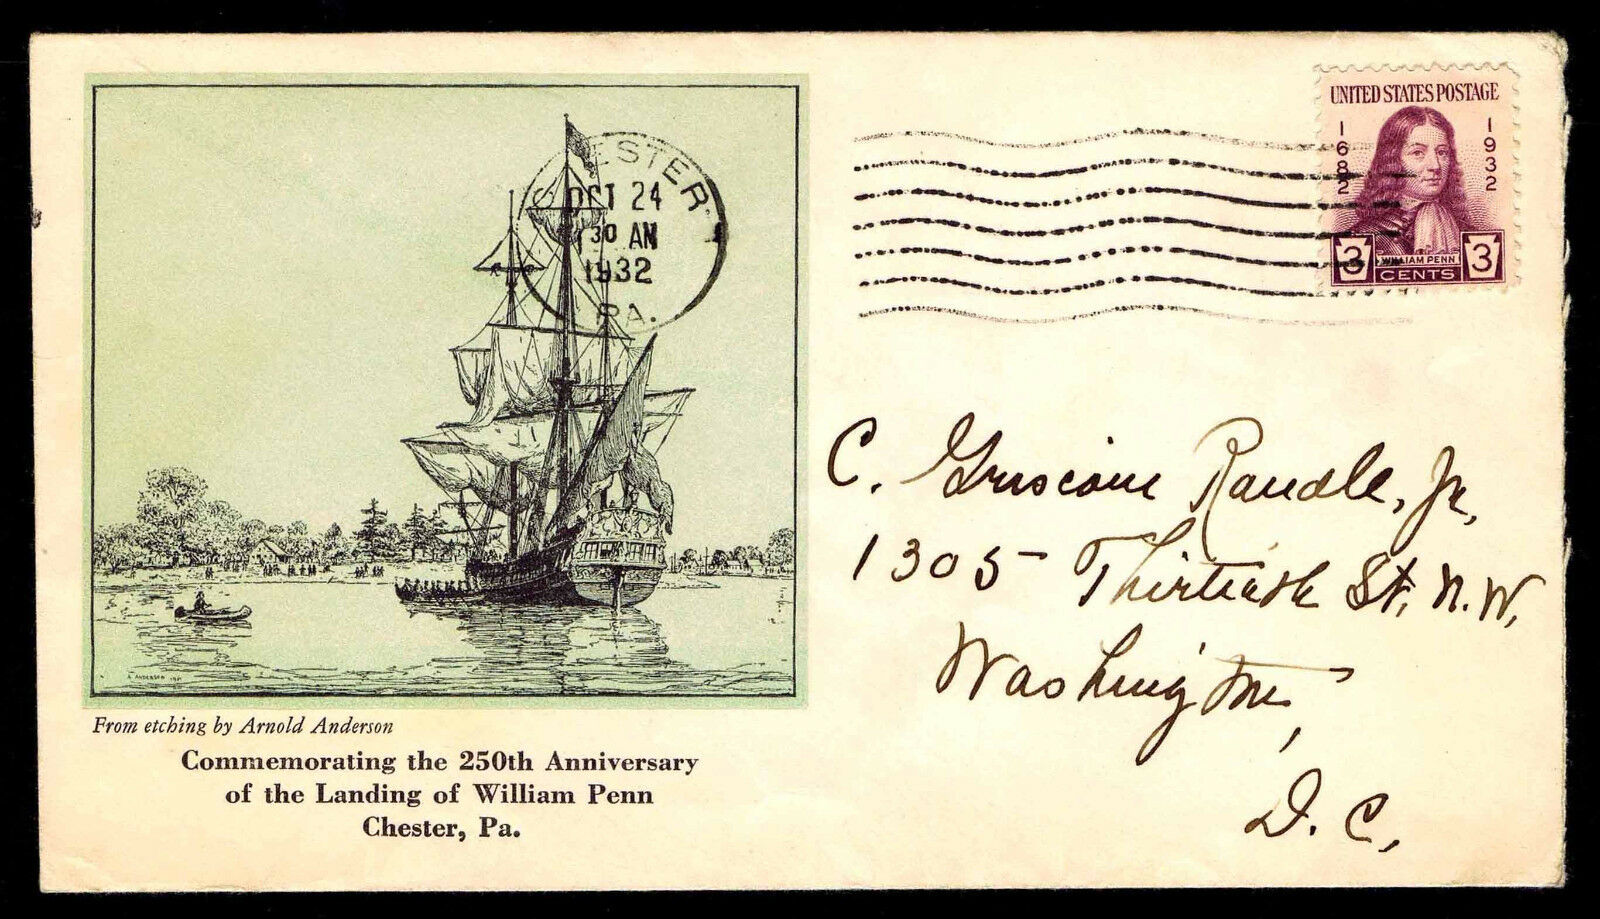 UNITED STATES POSTAGE
1682
1932
3
WILLIAM PENN
CENTS
3
CHESTER
OCT 24
30 AM
1932
PA.
A. ANDERSON
From etching by Arnold Anderson
Commemorating the 250th Anniversary
of the Landing of William Penn
Chester, Pa.
C. Griscom Randle, Jr,
1305 Thirtieth St, N.W,
Washington,
D. C,